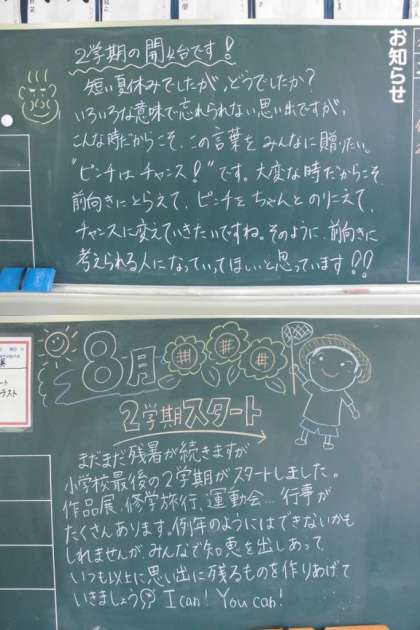 お知らせ
2学期の開始です!
短い夏休みでしたが、どうでしたか?
いろいろな意味で忘れられない思い出ですが、
こんな時だからこそ、この言葉をみんなに贈りたい。
"ピンチはチャンス!"です。大変な時だからこそ
前向きにとらえて、ピンチをちゃんとのりこえて、
チャンスに変えていきたいですね。そのように、前向きに
考えられる人になっていってほしいと思っています!!
8月
2学期スタート
まだまだ残暑が続きますが
小学校最後の2学期がスタートしました。
作品展、修学旅行、運動会...行事が
たくさんあります。例年のようにはできないかも
しれませんが、みんなで知恵を出しあって、
いつも以上に思い出に残るものを作りあげて
いきましょう I can! You can!